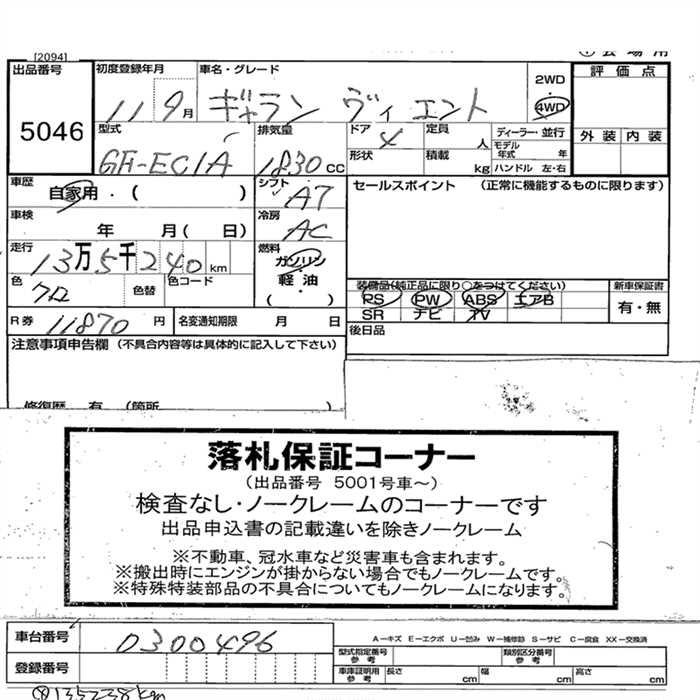 [2094]
出品番号
5046
初度登録年月
11 9月
車名・グレード
ギャラン ヴィエント
2WD
・
4WD
評価点
外装 内装
型式
GH-EC1A
排気量
1830cc
ドア 4
形状
定員 人
積載 kg
ディーラー・並行
モデル年式 年
ハンドル 左・右
車歴
自家用・( )
シフト
AT
セールスポイント (正常に機能するものに限ります)
車検
年 月( 日)
冷房
AC
走行
13万5千240km
燃料
ガソリン
軽油
( )
色
クロ
色替
色コード
装備品(純正品に限り○をつけてください)
PS PW ABS エアB
SR ナビ AV
新車保証書
有・無
R券 11870円
名変通知期限 月 日
後日品
注意事項申告欄 (不具合内容等は具体的に記入して下さい)
修復歴 有 (箇所
落札保証コーナー
(出品番号 5001号車~)
検査なし・ノークレームのコーナーです
出品申込書の記載違いを除きノークレーム
※不動車、冠水車など災害車も含まれます。
※搬出時にエンジンが掛からない場合でもノークレームです。
※特殊特装部品の不具合についてもノークレームになります。
車台番号 0300496
A-キズ E-エクボ U-凹み W-補修跡 S-サビ C-腐食 XX-交換済
型式指定番号 参考
類別区分番号 参考
登録番号
車庫証明用 参考
長さ cm
幅 cm
高さ cm